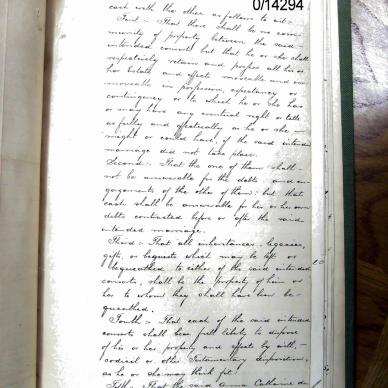 0/14294
each with the other as follows to wit:-
First:- That there shall be no com-
munity of property between the said
intended consorts but that he or she shall
respectively retain and possess all his or
her Estate and effects moveable and im
moveable in possession, expectancy or
contingency or to which he or she has
or may have any eventual right or title
as fully and effectually as he or she
might or could have if the said intended
marriage did not take place.
Second:- That the one of them shall
not be answerable for the debts and en-
gagements of the other of them: but that
each shall be answerable for his or her own
debts contracted before or after the said
intended marriage.
Third:- That all inheritances, legacies,
gifts, or bequests which may be left or
bequeathed to either of the said intended
consorts, shall be the property of him or
her to whom they shall have been be-
queathed.
Fourth:- That each of the said intended
consorts shall have full liberty to dispose
of his or her property and effects by will,
codicil or other Testamentary disposition,
as he or she may think fit.
Fifth:- That the said Anna Catharina